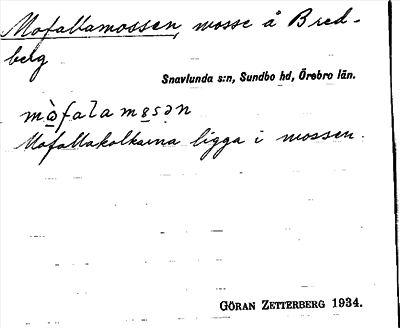 Mofallamossen, mosse å Bred-
berg
Snavlunda s:n, Sundbo hd, Örebro län.
Mofallakolkarna ligga i mossen.
GÖRAN ZETTERBERG 1934.